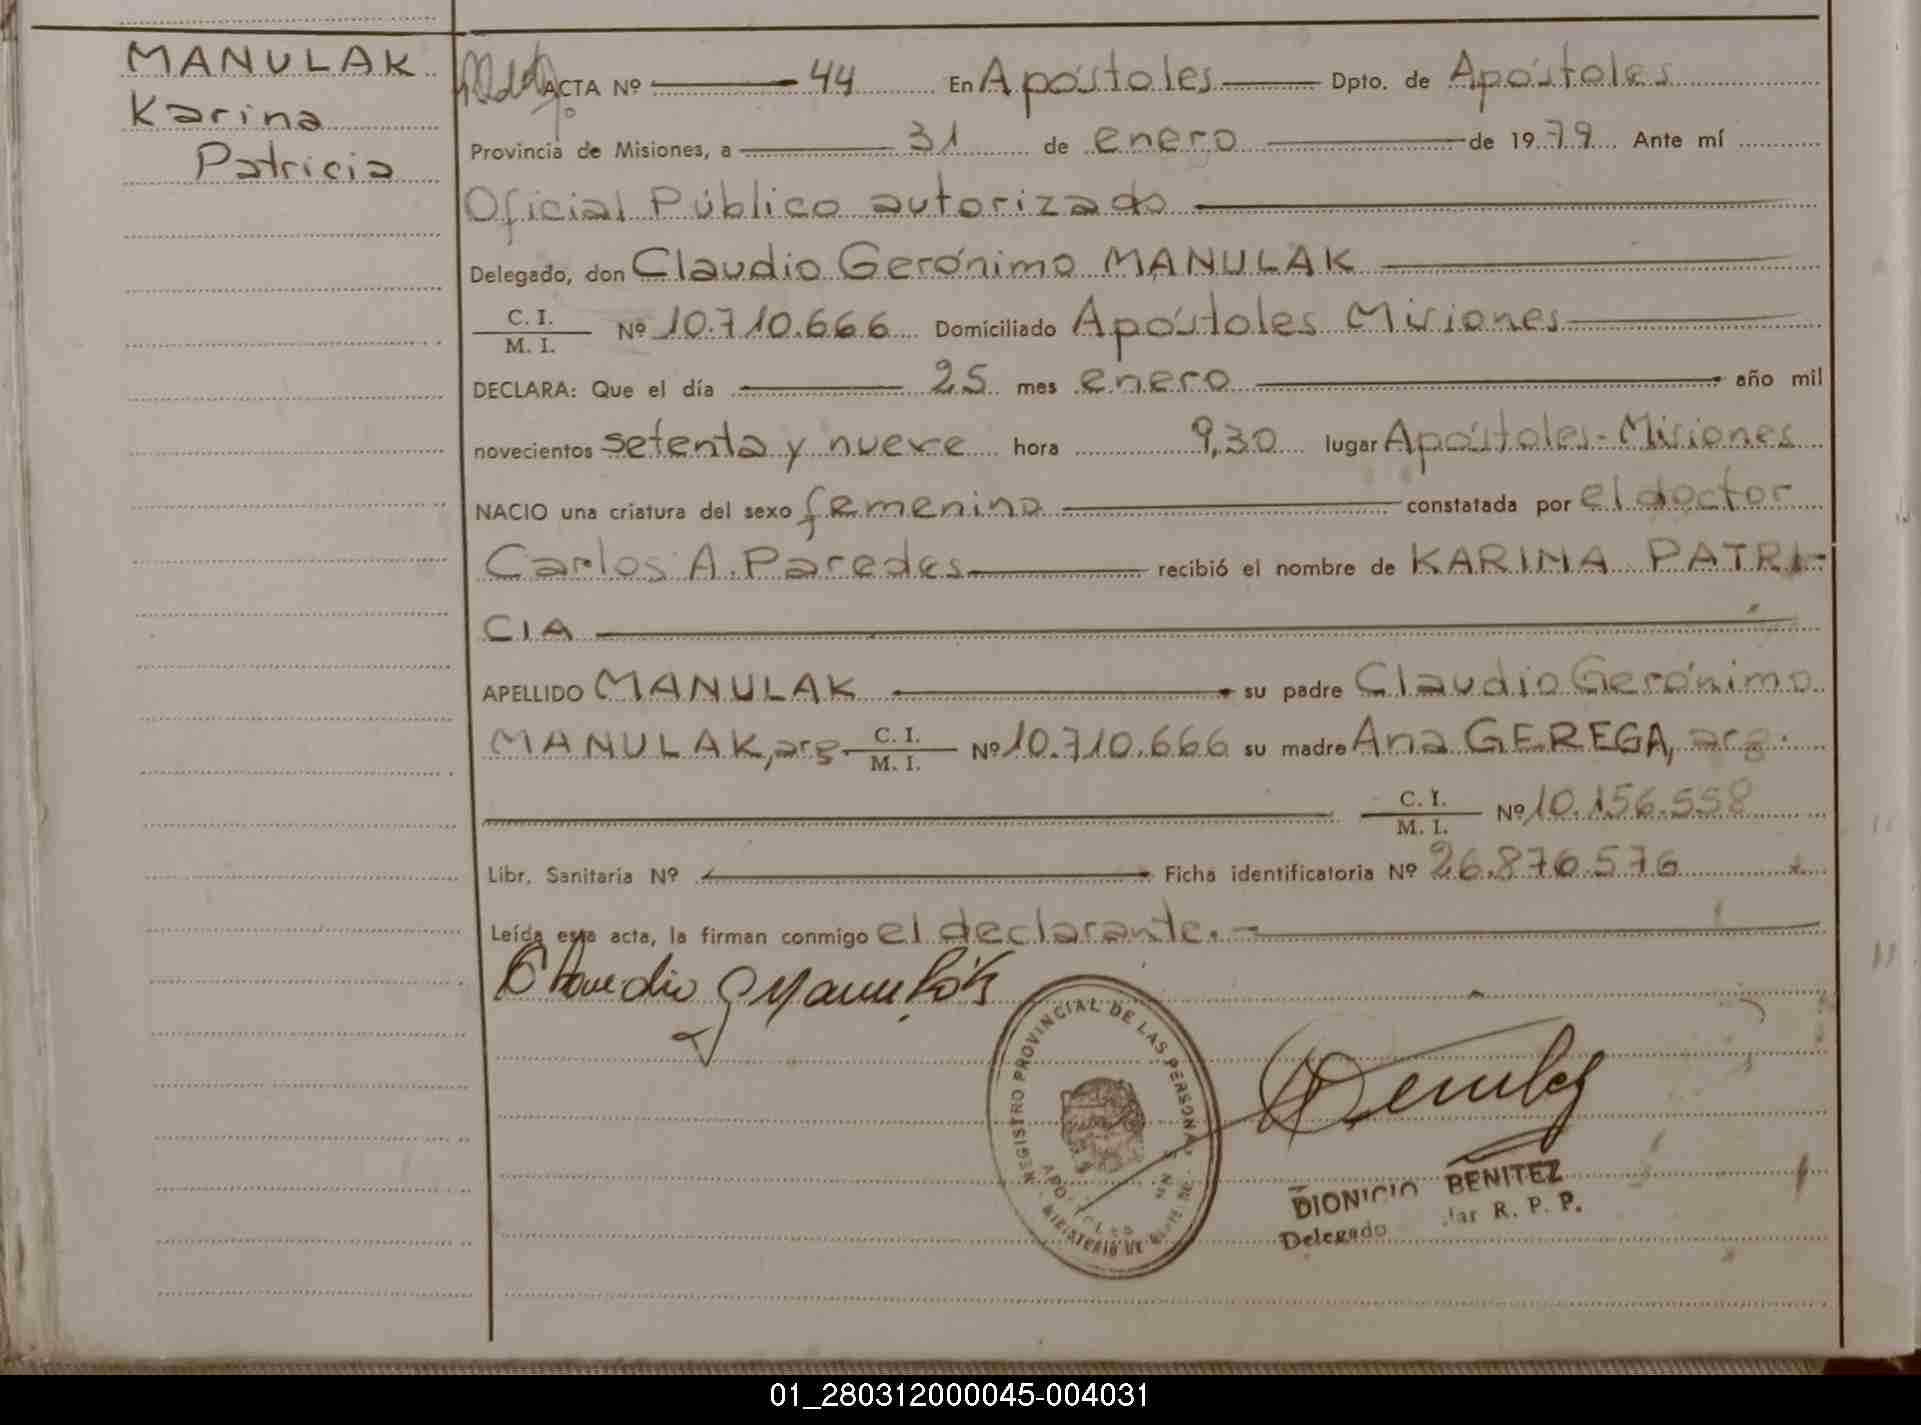 MANULAK
Karina
Patricia
ACTA Nº 44 En Apóstoles Dpto. de Apóstoles
Provincia de Misiones, a 31 de enero de 1979. Ante mí
Oficial Público autorizado
Delegado, don Claudio Gerónimo MANULAK
C. I.
M. I. Nº 10.710.666 Domiciliado Apóstoles Misiones
DECLARA: Que el día 25 mes enero año mil
novecientos setenta y nueve hora 9,30 lugar Apóstoles-Misiones
NACIO una criatura del sexo femenino constatada por el doctor
Carlos A. Paredes recibió el nombre de KARINA PATRI-
CIA
APELLIDO MANULAK su padre Claudio Gerónimo
MANULAK, arg. C. I. M. I. Nº 10.710.666 su madre Ana GEREGA, arg.
C. I. M. I. Nº 10.156.558
Libr. Sanitaria Nº Ficha identificatoria Nº 26.876.576
Leída esta acta, la firman conmigo el declarante.-
Claudio G Manulak
REGISTRO PROVINCIAL DE LAS PERSONAS
MINISTERIO DE
DIONICIO BENITEZ
Delegado R. P. P.
01_280312000045-004031